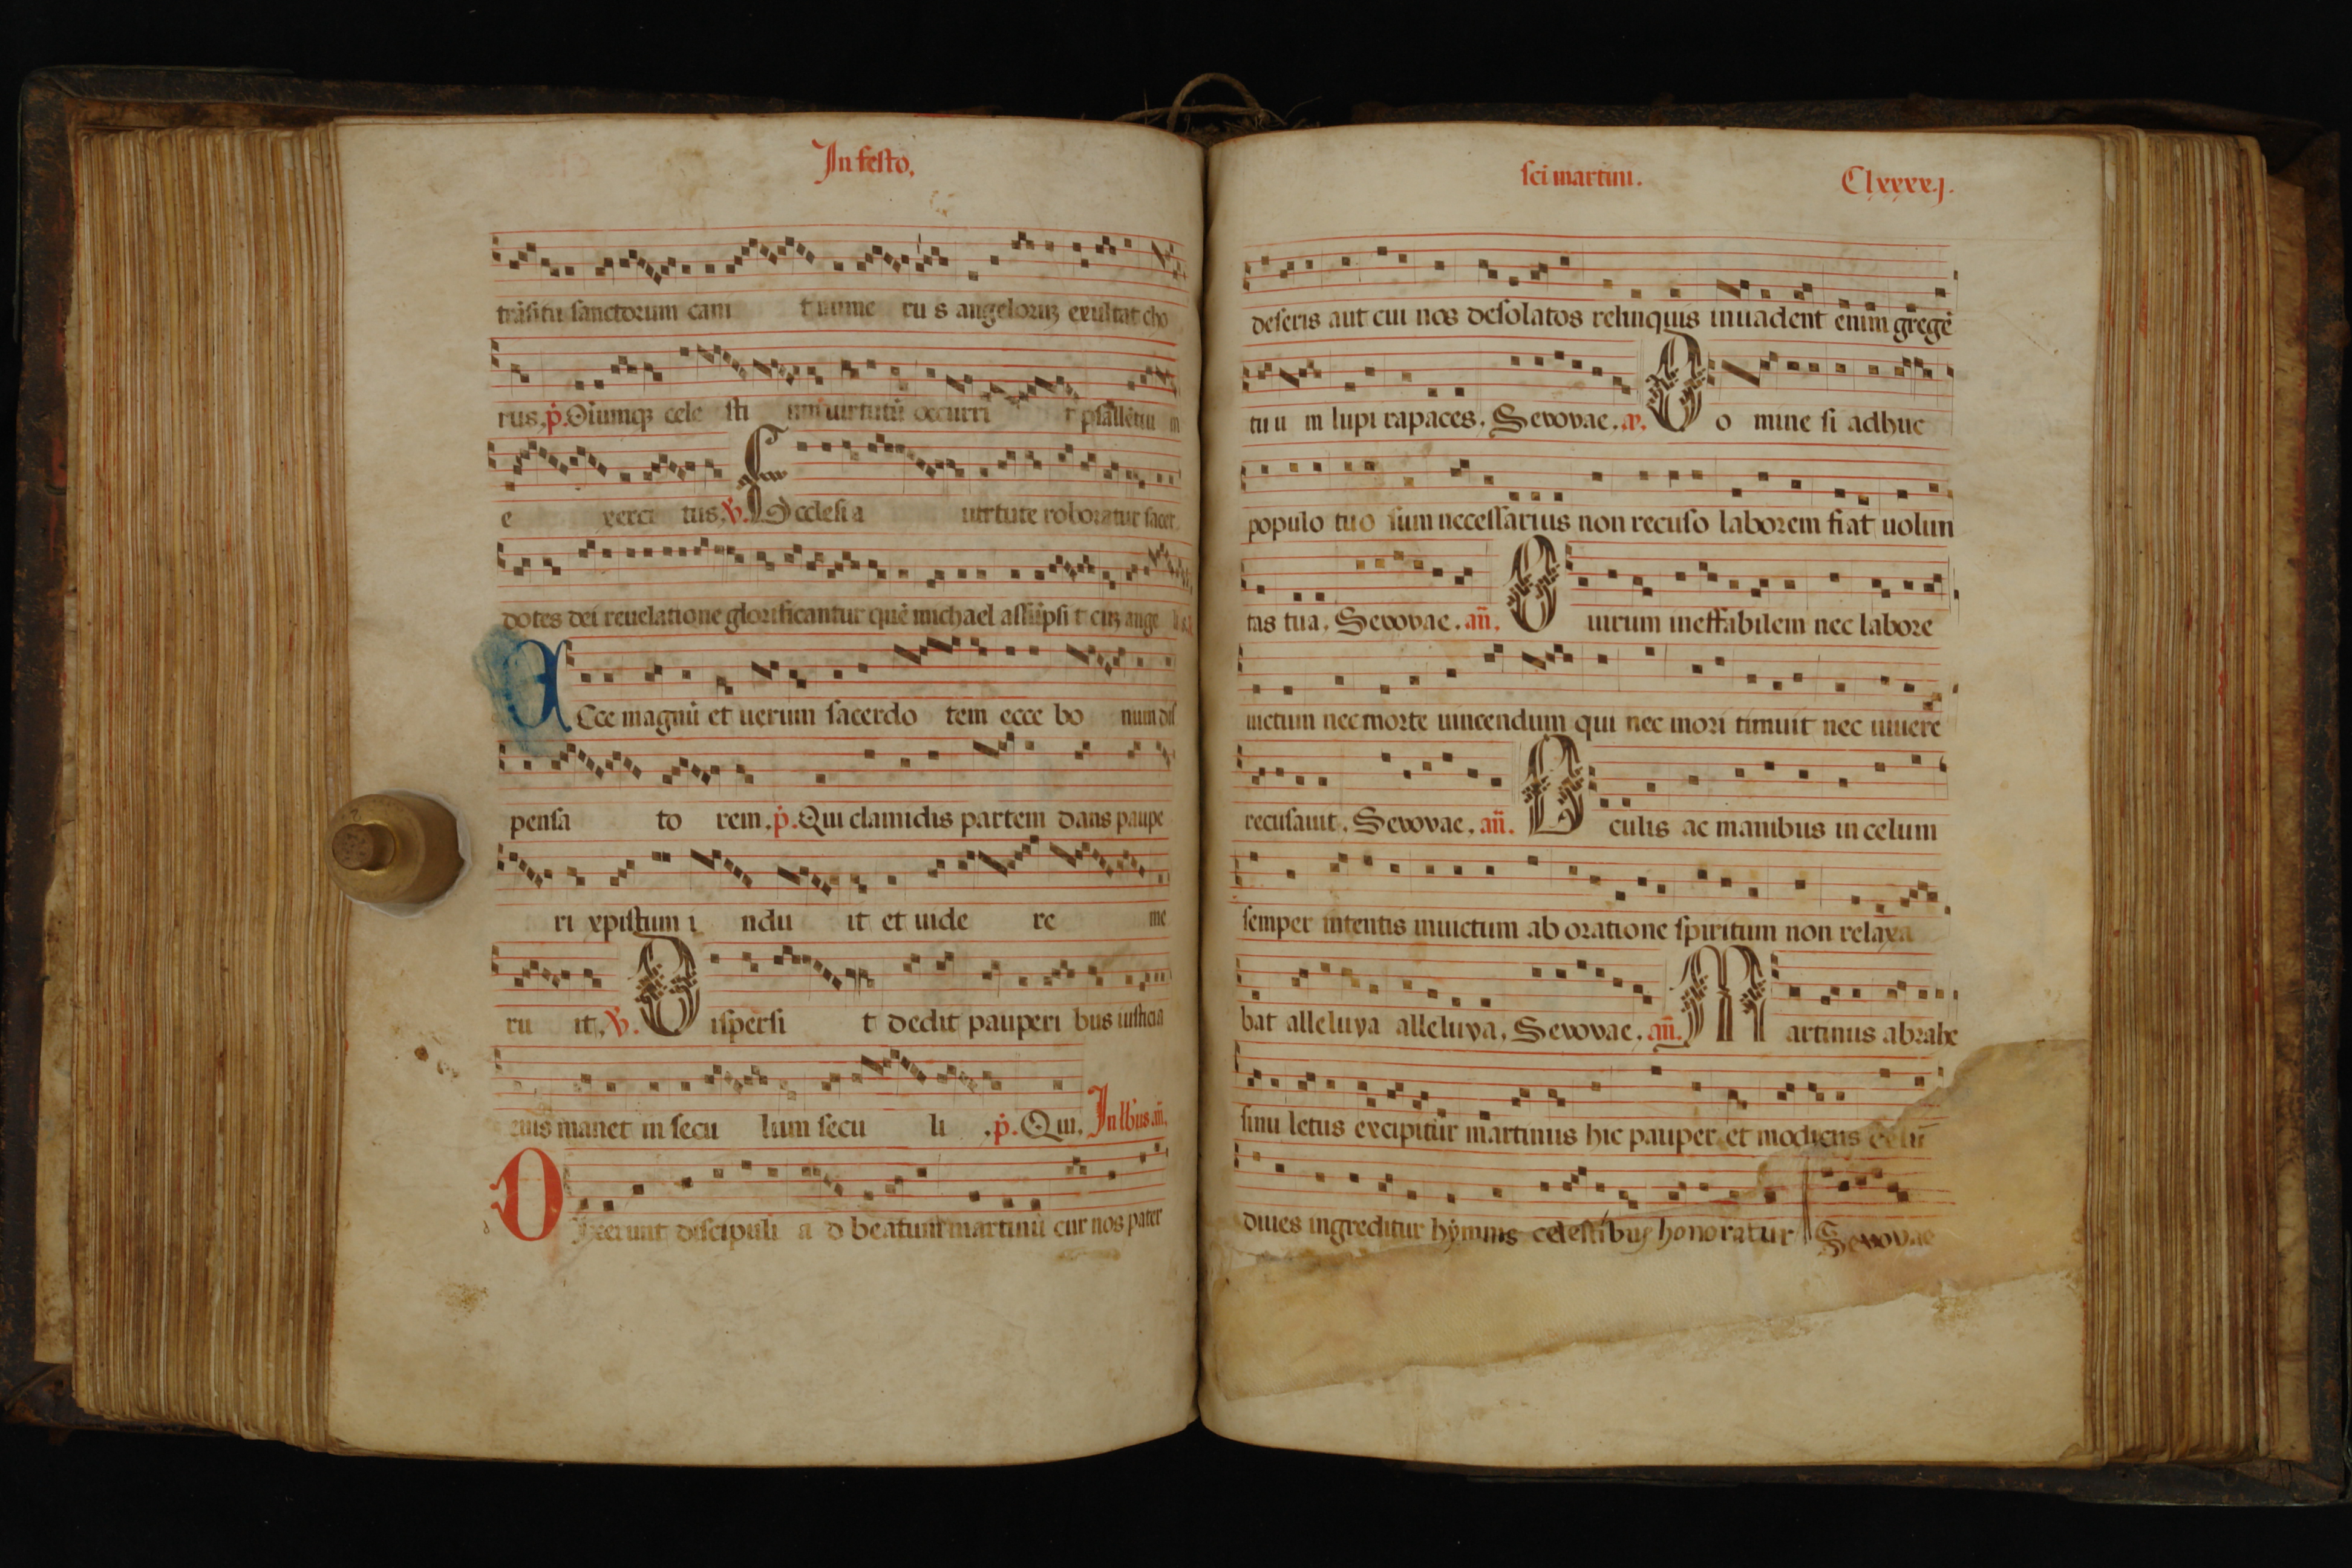 In festo.
trãsitu sanctorum cam t nume ru s angeloruʒ exultat cho
rus. p. Oiumqʒ cele sti um uirtutũ occurri t psallẽtiu m
e xerci tus. v. Ecclesi a uirtute roboratur sacer
dotes dei reuelatione glorificantur quẽ michael assũpsi t cuʒ ange
Ecce magnũ et uerum sacerdo tem ecce bo num dis
pensa to rem. p. Qui clamidis partem dans paupe
ri xpistum i ndu it et uide re me
ru it. v. Dispersi t dedit pauperi bus iusticia
eius manet in secu lum secu li . p. Qui. In lb'us añ.
Dixerunt discipuli a d beatum martinũ cur nos pater
sci martini. Clxxxx.j.
deseris aut cui nos desolatos relinquis inuadent enim gregẽ
tuu m lupi rapaces. Sevovae. a. Do mine si adhuc
populo tuo sum necessarius non recuso laborem fiat uolun
tas tua. Sevovae. añ. O uirum ineffabilem nec labore
uictum nec morte uincendum qui nec mori timuit nec uiuere
recusauit. Sevovae. añ. Oculis ac manibus in celum
semper intentis inuictum ab oratione spiritum non relaxa
bat alleluya alleluya. Sevovae. añ. Martinus abrahe
sinu letus excipitur martinus hic pauper et modicus celũ
diues ingreditur hymnis celestibus honoratur Sevovae